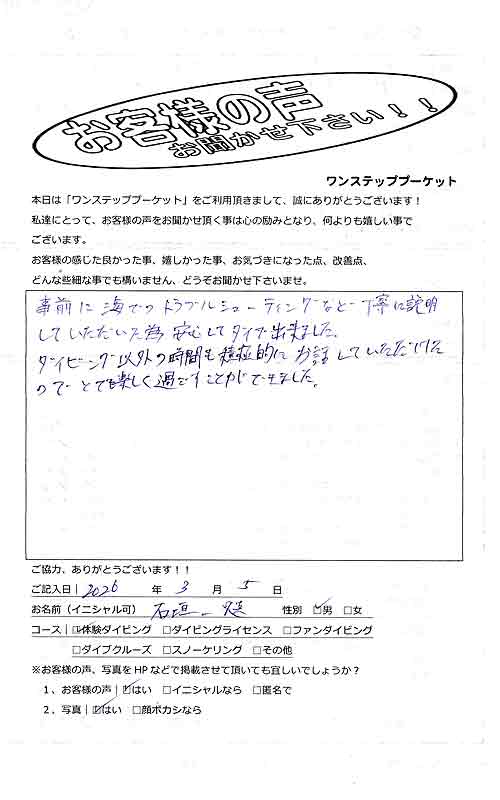 お客様の声
お聞かせ下さい！！
ワンステッププーケット
本日は「ワンステッププーケット」をご利用頂きまして、誠にありがとうございます！
私達にとって、お客様の声をお聞かせ頂く事は心の励みとなり、何よりも嬉しい事で
ございます。
お客様の感じた良かった事、嬉しかった事、お気づきになった点、改善点、
どんな些細な事でも構いません、どうぞお聞かせ下さいませ。
事前に海でのトラブルシューティングなど丁寧に説明
していただいた為安心してダイブ出来ました。
ダイビング以外の時間も積極的にお話していただけた
のでとても楽しく過ごすことができました。
ご協力、ありがとうございます！！
ご記入日 | 2026 年 3 月 5 日
お名前（イニシャル可） 石垣 一 性別 ☑男 □女
コース | ☑体験ダイビング □ダイビングライセンス □ファンダイビング
□ダイブクルーズ □スノーケリング □その他
※お客様の声、写真をHPなどで掲載させて頂いても宜しいでしょうか？
1、お客様の声 | ☑はい □イニシャルなら □匿名で
2、写真 | ☑はい □顔ボカシなら